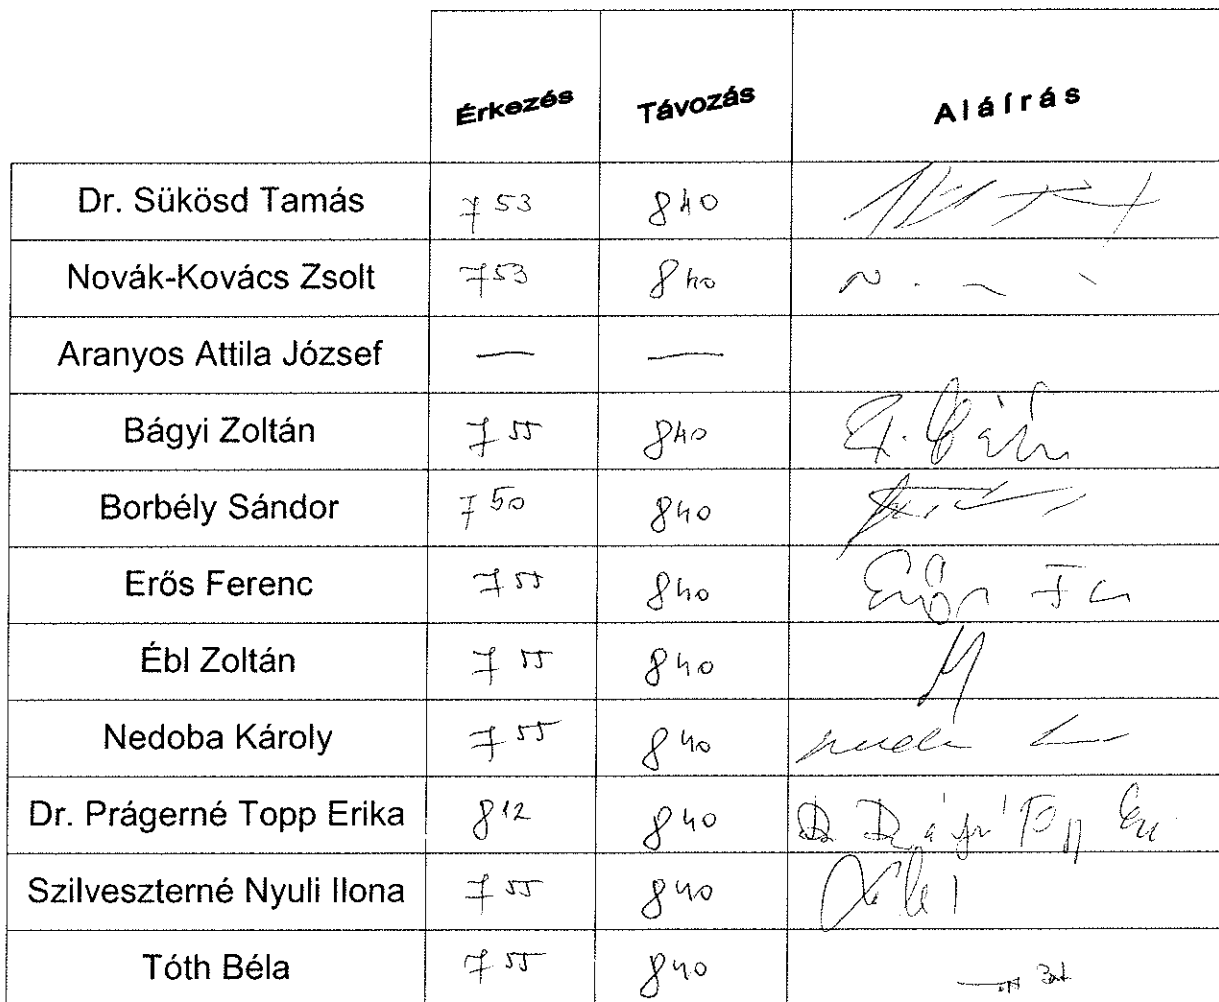 Érkezés Távozás Aláírás
Dr. Sükösd Tamás 7 53 8 40
Novák-Kovács Zsolt 7 53 8 40
Aranyos Attila József — —
Bágyi Zoltán 7 55 8 40
Borbély Sándor 7 50 8 40
Erős Ferenc 7 55 8 40
Ébl Zoltán 7 55 8 40
Nedoba Károly 7 55 8 40
Dr. Prágerné Topp Erika 8 12 8 40
Szilveszterné Nyuli Ilona 7 55 8 40
Tóth Béla 7 55 8 40